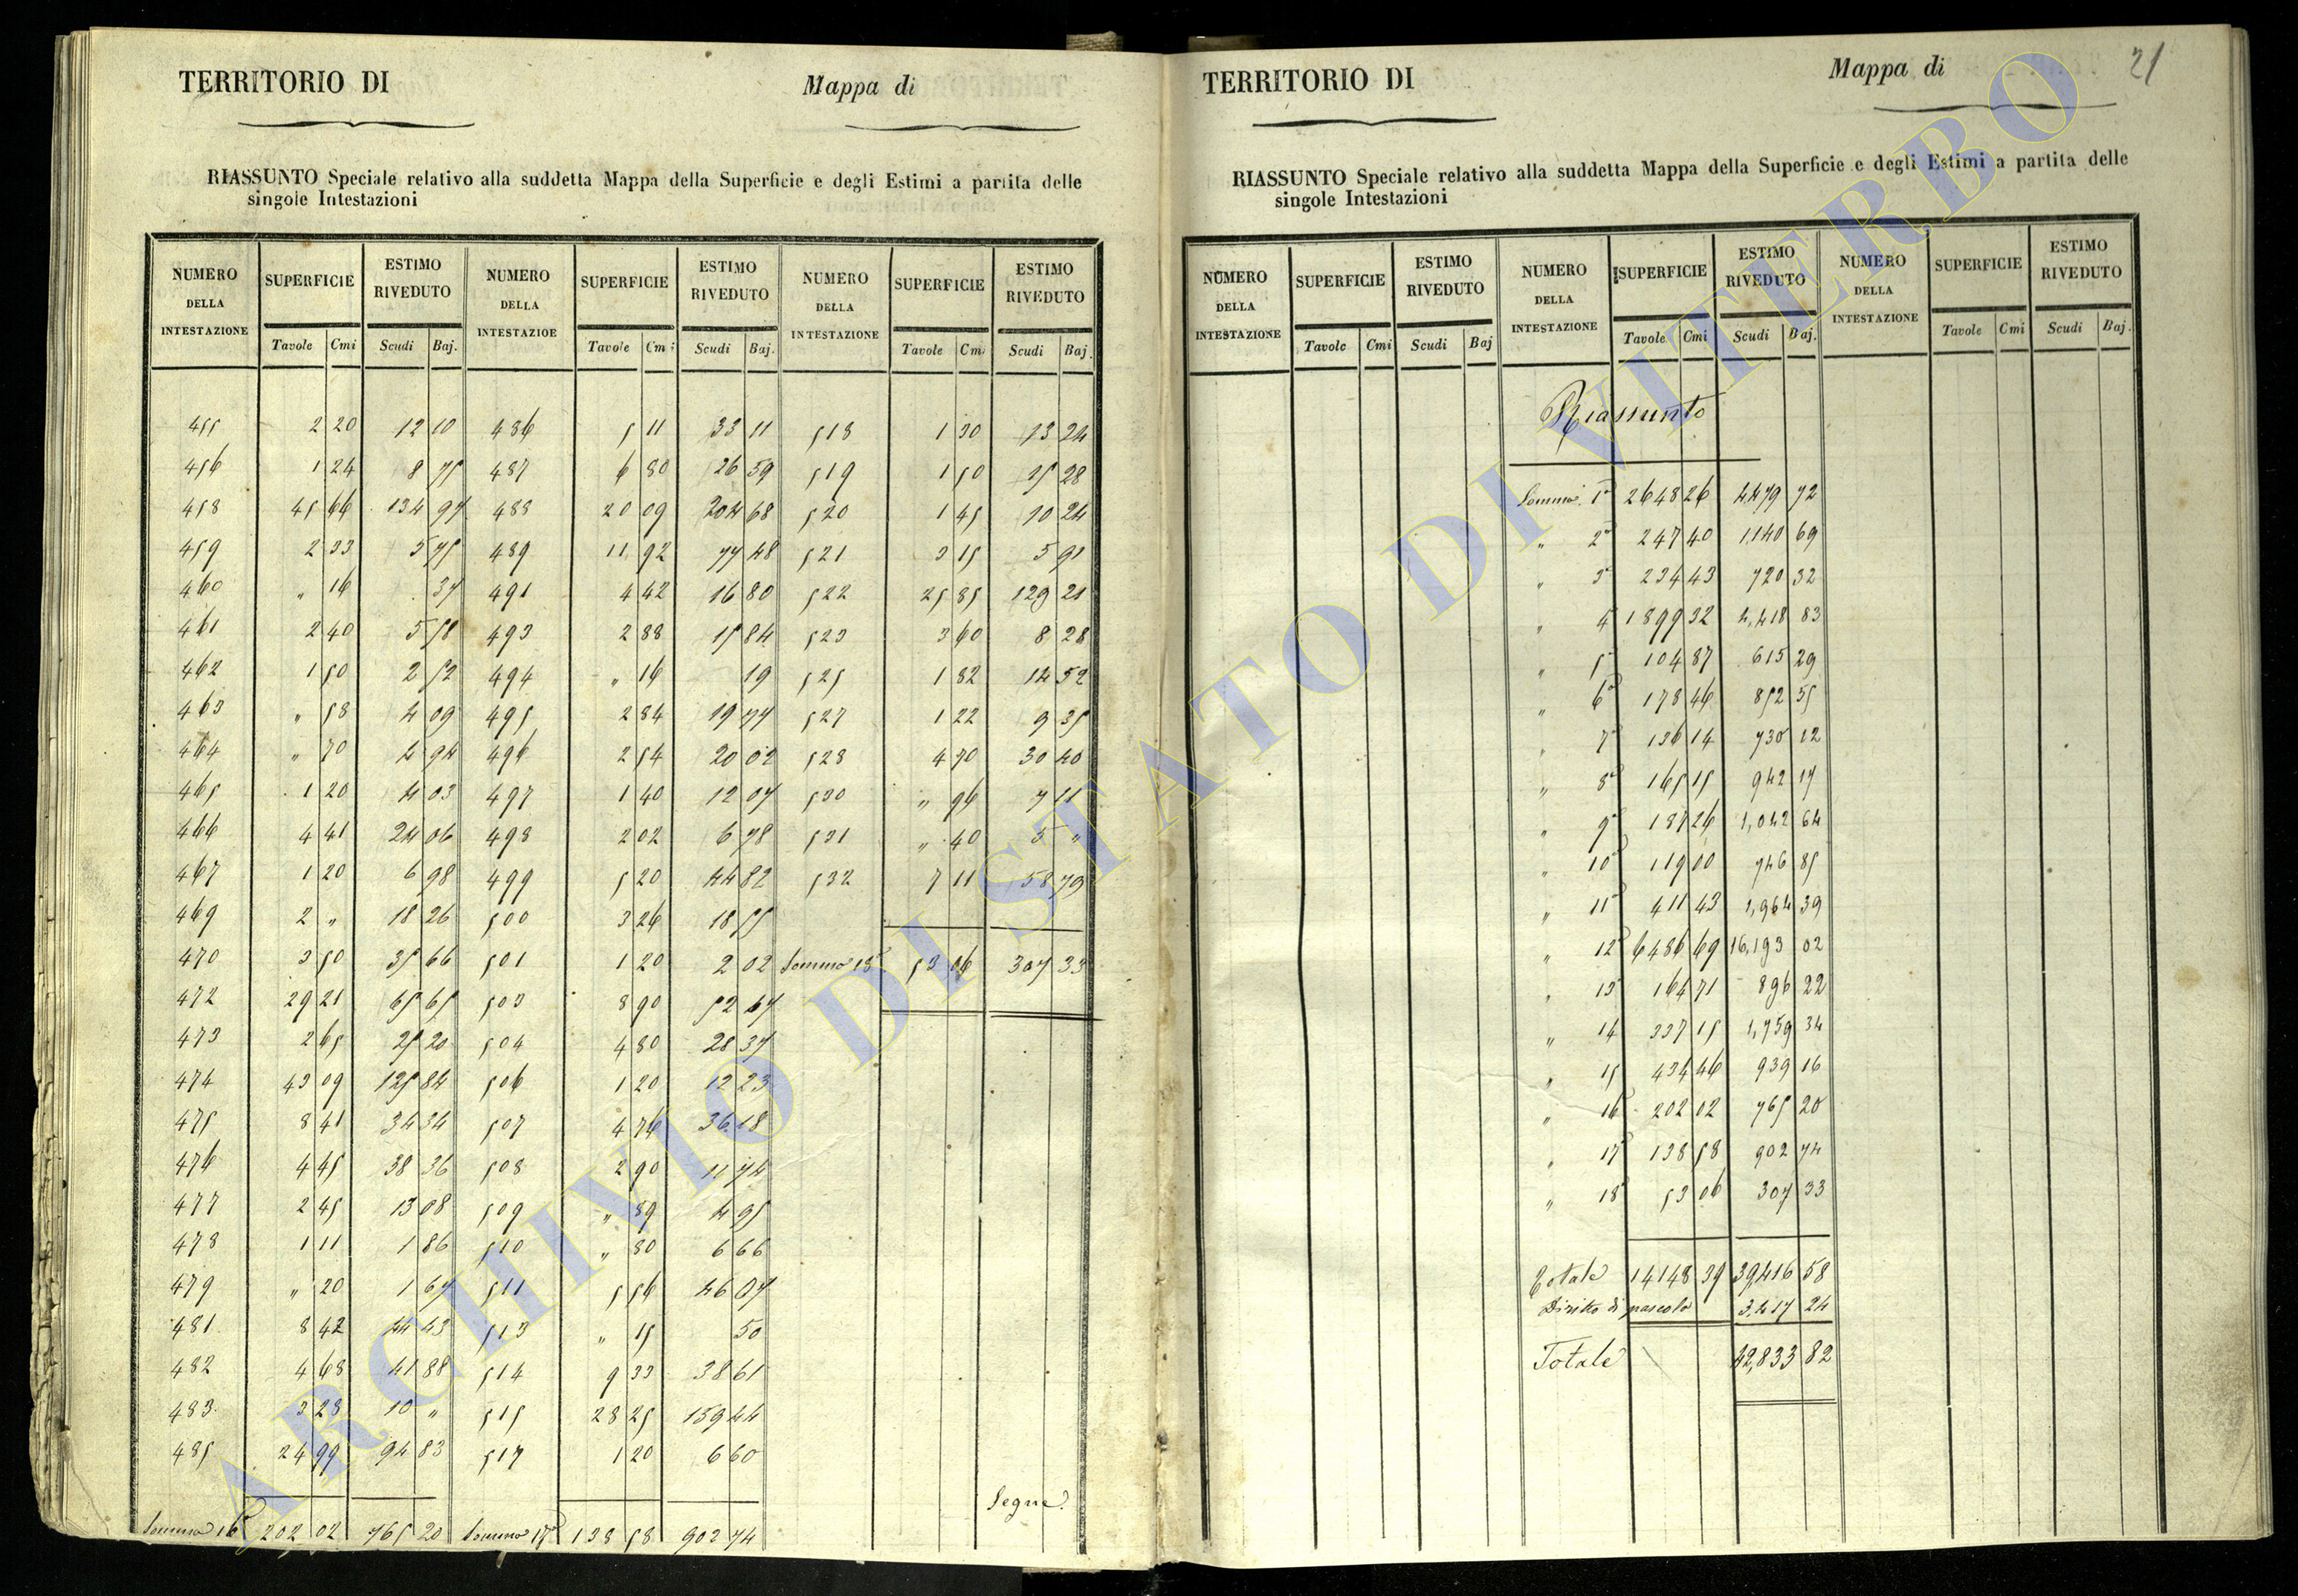 TERRITORIO DI Mappa di
RIASSUNTO Speciale relativo alla suddetta Mappa della Superficie e degli Estimi a partita delle
singole Intestazioni
NUMERO DELLA INTESTAZIONE SUPERFICIE ESTIMO RIVEDUTO NUMERO DELLA INTESTAZIOE SUPERFICIE ESTIMO RIVEDUTO NUMERO DELLA INTESTAZIONE SUPERFICIE ESTIMO RIVEDUTO
Tavole Cmi Scudi Baj. Tavole Cmi Scudi Baj. Tavole Cmi Scudi Baj.
455 2 20 12 10 486 5 11 33 11 518 1 30 13 24
456 1 24 8 75 487 6 80 26 59 519 1 50 15 28
458 45 66 134 97 488 20 09 204 68 520 1 45 10 24
459 2 33 5 75 489 11 92 77 48 521 3 15 5 91
460 " 16 37 491 4 42 16 80 522 25 85 129 21
461 2 40 5 58 493 2 88 15 84 523 3 60 8 28
462 1 50 2 52 494 " 16 19 525 1 82 14 52
463 " 58 4 09 495 2 84 19 77 527 1 22 9 35
464 " 70 4 94 496 2 54 20 02 528 4 70 30 40
465 1 20 4 03 497 1 40 12 07 530 " 96 7 11
466 4 41 24 06 498 2 02 6 78 531 " 40 5 "
467 1 20 6 98 499 5 20 44 82 532 7 11 58 79
469 2 " 18 26 500 3 26 18 55
470 3 50 35 66 501 1 20 2 02 Somma 18ª 53 06 307 33
472 29 21 65 65 503 8 90 52 67
473 2 65 25 20 504 4 80 28 37
474 43 09 125 84 506 1 20 12 23
475 8 41 34 34 507 4 76 36 18
476 4 45 38 36 508 2 90 11 74
477 2 45 13 08 509 " 89 4 95
478 1 11 1 86 510 " 80 6 66
479 " 20 1 67 511 5 56 46 07
481 8 42 44 43 513 " 15 50
482 4 68 41 88 514 9 33 38 61
483 3 28 10 " 515 28 25 159 44
485 24 99 94 83 517 1 20 6 60
Segue
Somma 16ª 202 02 765 20 Somma 17ª 138 58 902 74
TERRITORIO DI Mappa di 21
RIASSUNTO Speciale relativo alla suddetta Mappa della Superficie e degli Estimi a partita delle
singole Intestazioni
NUMERO DELLA INTESTAZIONE SUPERFICIE ESTIMO RIVEDUTO NUMERO DELLA INTESTAZIONE SUPERFICIE ESTIMO RIVEDUTO NUMERO DELLA INTESTAZIONE SUPERFICIE ESTIMO RIVEDUTO
Tavole Cmi Scudi Baj Tavole Cmi Scudi Baj. Tavole Cmi Scudi Baj.
Riassunto
Somma 1ª 2648 26 4479 72
" 2ª 247 40 1,140 69
" 3ª 234 43 720 32
" 4ª 1899 32 4,418 83
" 5ª 104 87 615 29
" 6ª 178 46 852 55
" 7ª 136 14 730 12
" 8ª 165 15 942 17
" 9ª 187 26 1,042 64
" 10ª 119 00 746 85
" 11ª 411 43 1,964 39
" 12ª 6486 69 16,193 02
" 13ª 164 71 896 22
" 14 337 15 1,759 34
" 15 434 46 939 16
" 16ª 202 02 765 20
" 17ª 138 58 902 74
" 18ª 53 06 307 33
Totale 14148 39 39,416 58
Diritto di pascolo 3,417 24
Totale 42,833 82
ARCHIVIO DI STATO DI VITERBO